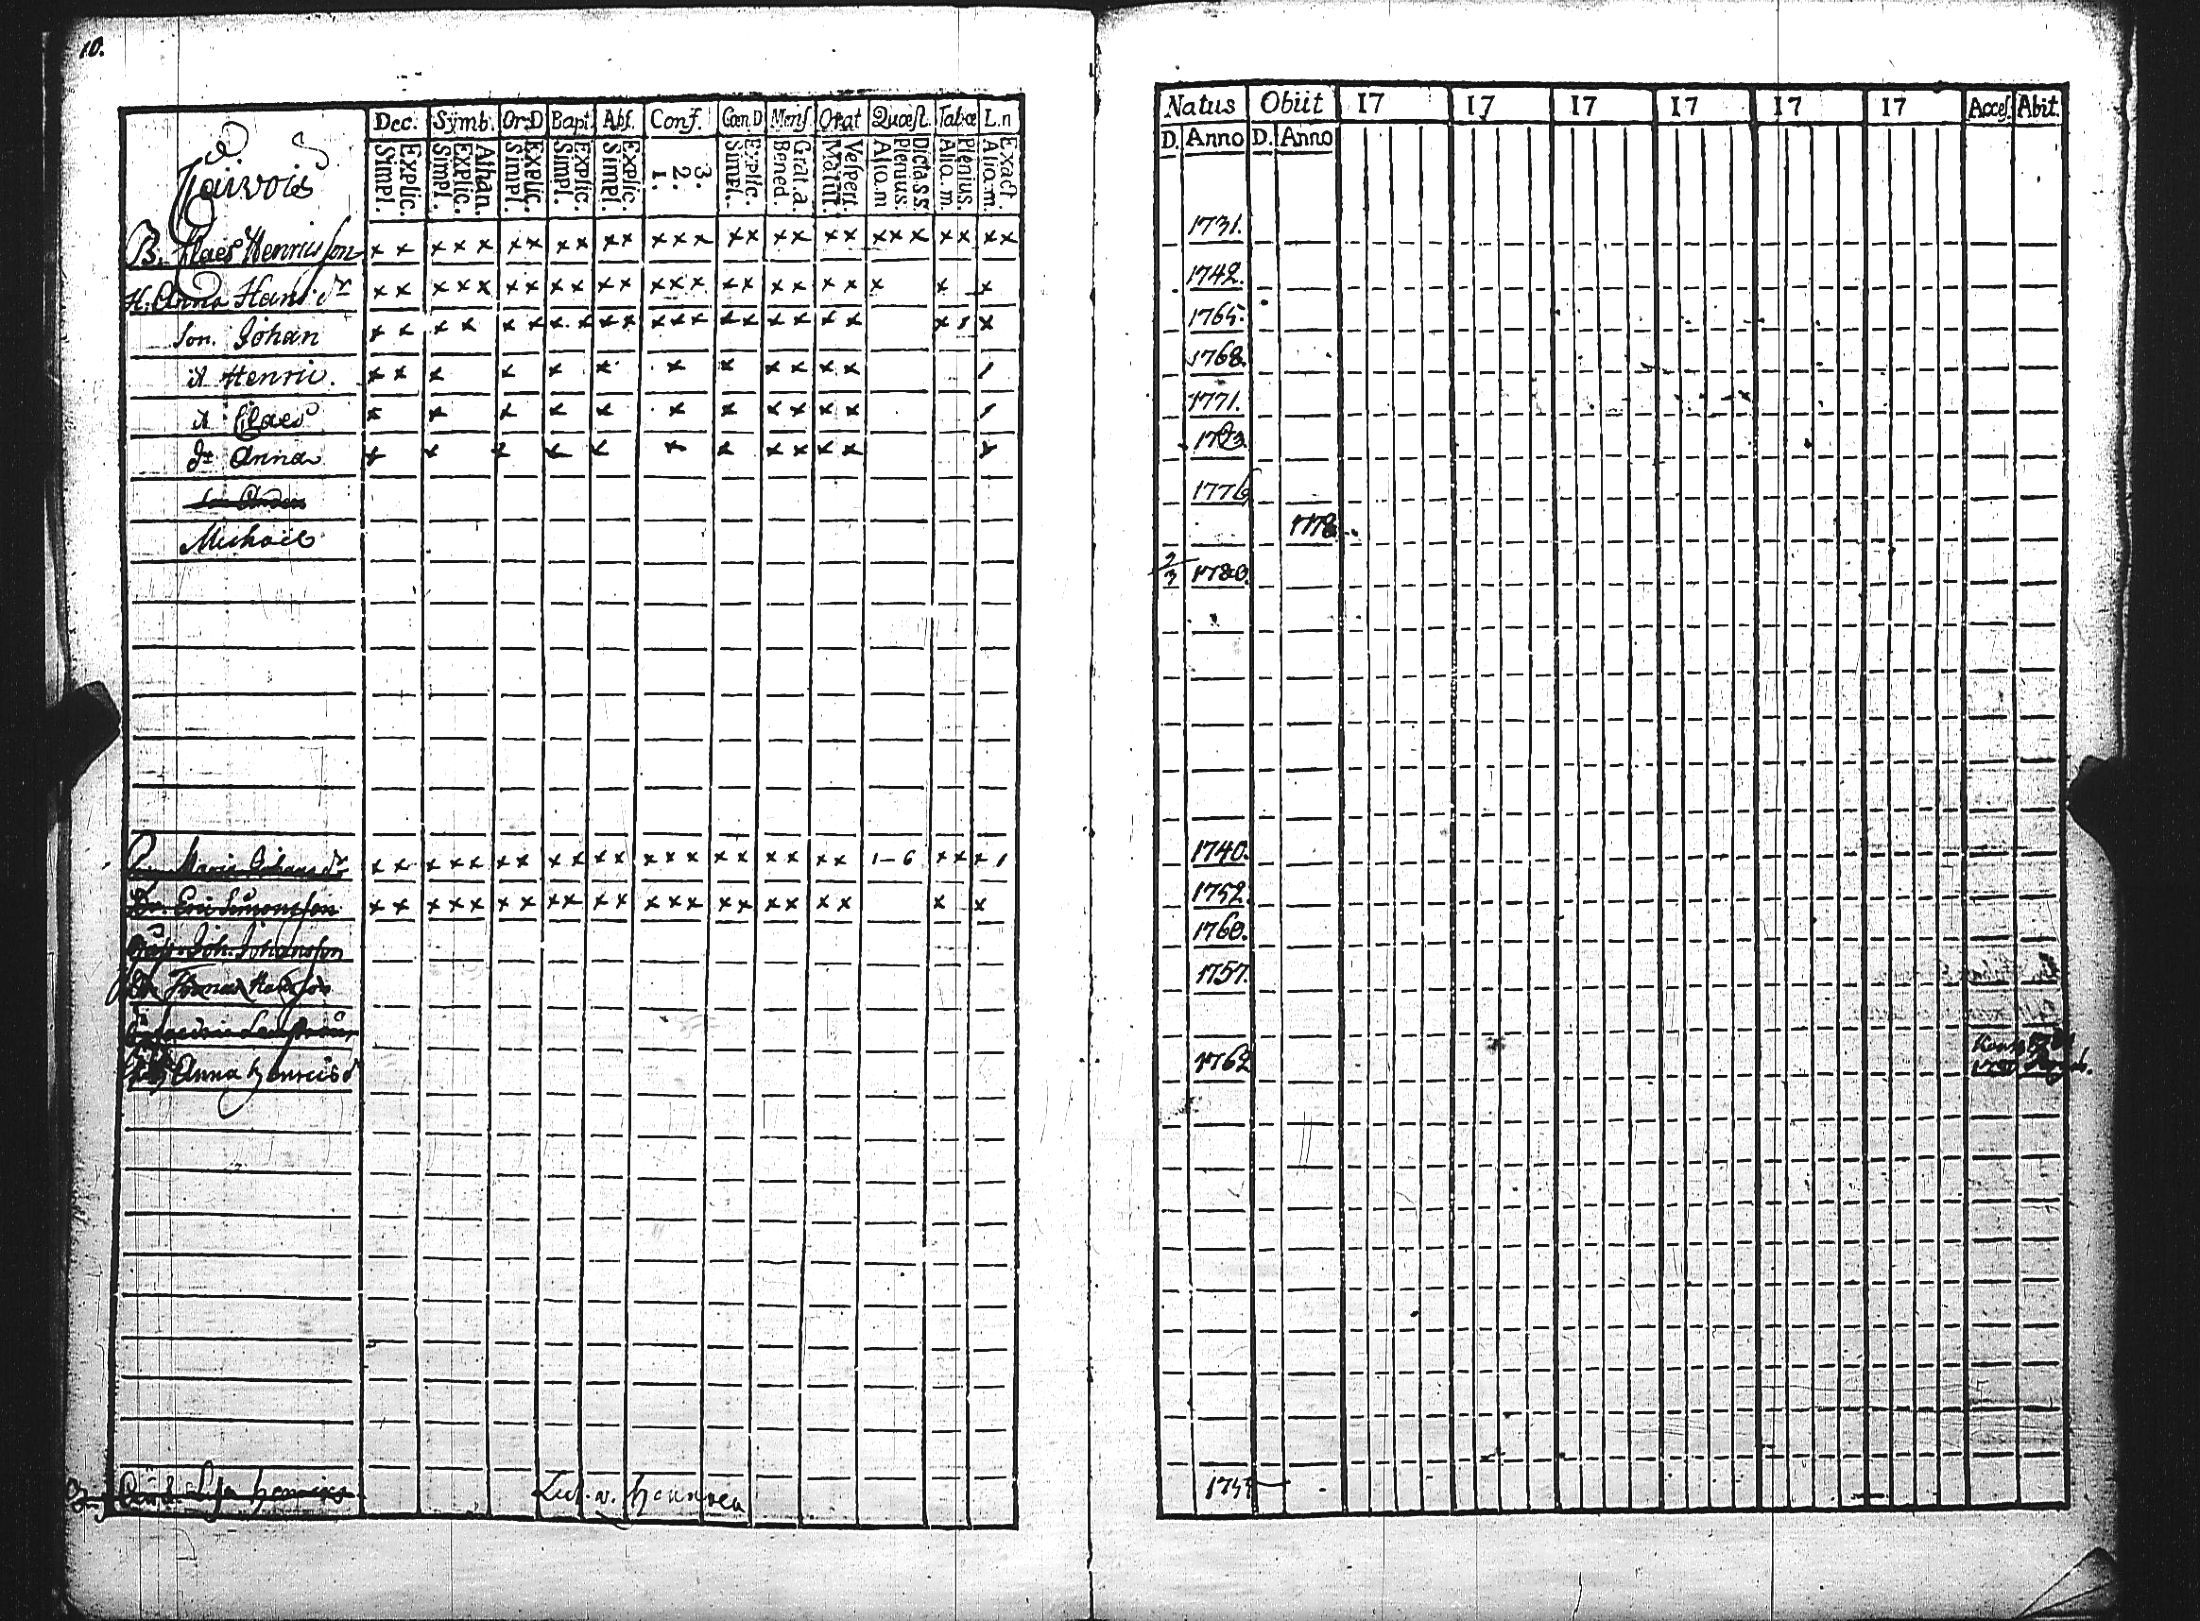 10.
Dec. Symb. Or:D Bapt. Abſ. Conf. Cœn.D Menſ. Orat Quæſt. Tabæ L.n
Simpl. Explic. Simpl. Explic. Athan. Simpl. Explic. Simpl. Explic. Simpl. Explic. 1. 2. 3. Simpl. Explic. Bened. Grat.a. Matut. Veſpert. Aliq.m Plenius. Dicta.s.s. Aliq.m. Plenius. Aliq.m. Exact.
B. Claes Henricsſon x x x x x x x x x x x x x x x x x x x x x x x x x x x
H. Anna Hans dr x x x x x x x x x x x x x x x x x x x x x x x
Son. Johan x x x x x x x x x x x x x x x x x x x x 1 x
dt Henric. x x x x x x x x x x x x 1
dt Claes x x x x x x x x x x x 1
dr Anna x x x x x x x x x x x x
Michaël
Maria Johans dr x x x x x x x x x x x x x x x x x x x x 1–6 x x x 1
Dr. Eric Simonsſon x x x x x x x x x x x x x x x x x x x x x x
Joh. Johansſon
Anna Henricsdr
Natus Obiit 17 17 17 17 17 17 Acceſ. Abit.
D. Anno D. Anno
1731.
1742.
1765.
1768.
1771.
1776
1778
2/3 1780.
1740.
1752.
1760.
1757.
1762